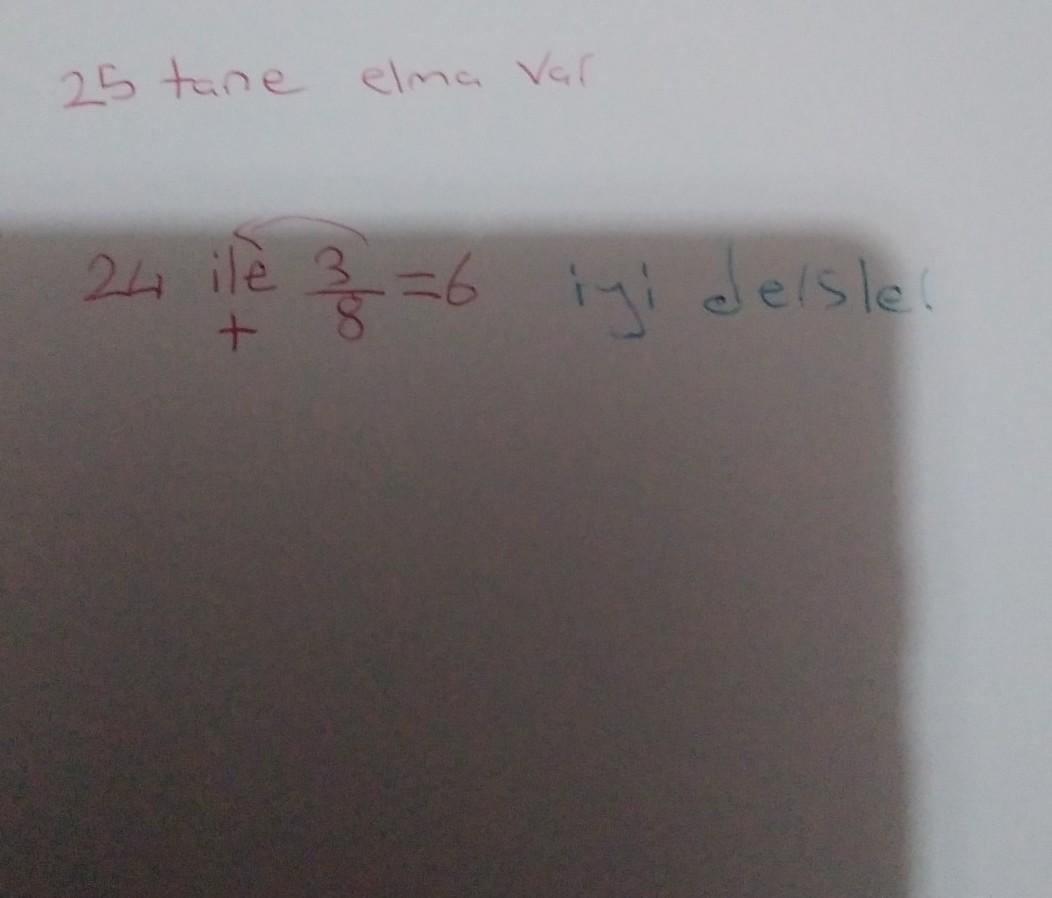 25 tane elma var
24 ile + 3/8 = 6 iyi dersler